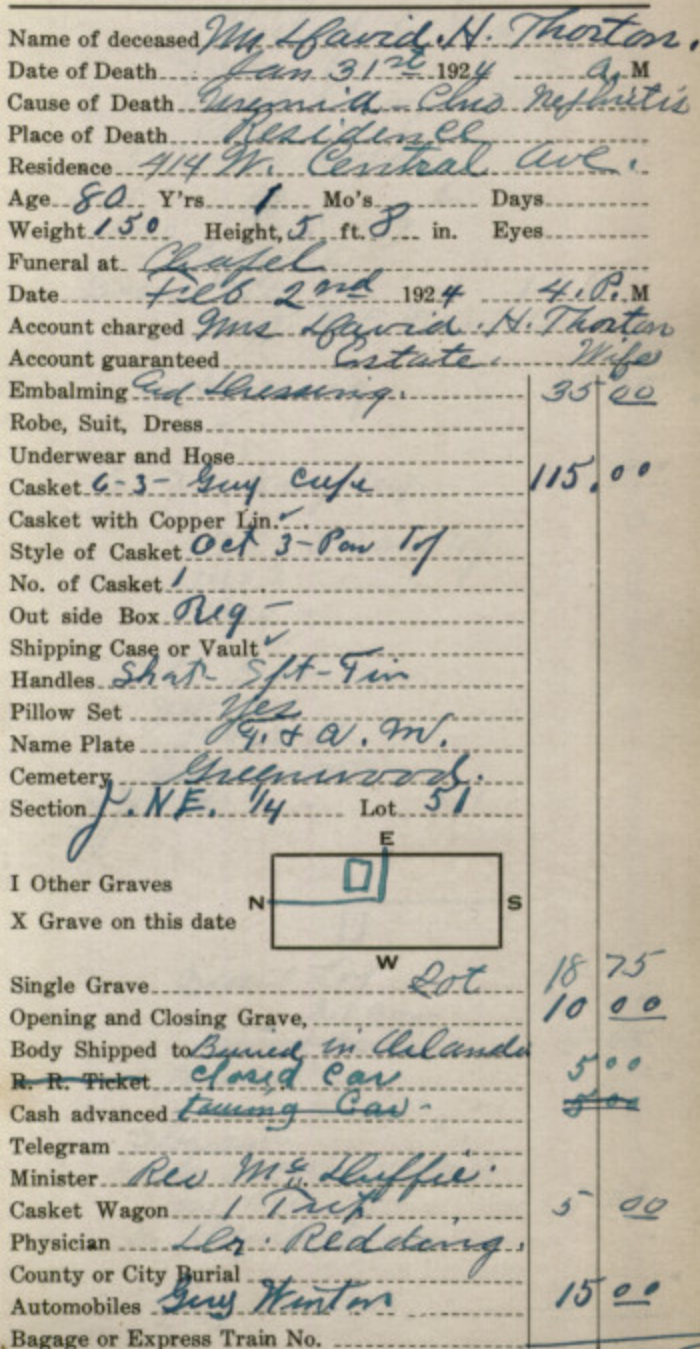 Name of deceased Mr David. H. Thorton.
Date of Death Jan 31st 1924 a. M
Cause of Death Uremia - Chro Nephritis
Place of Death Residence
Residence 414 W. Central Ave.
Age 80 Y'rs 1 Mo's Days
Weight 150 Height, 5 ft. 8 in. Eyes
Funeral at Chapel
Date Feb 2nd 1924 4. P. M
Account charged Mrs David. H. Thorton
Account guaranteed Estate. Wife
Embalming and Dressing. 35 00
Robe, Suit, Dress
Underwear and Hose
Casket 6-3- Grey Crepe 115.00
Casket with Copper Lin. ✓
Style of Casket Oct 3-Pan Top
No. of Casket 1
Out side Box Reg -
Shipping Case or Vault ✓
Handles Sft-Tin
Pillow Set Yes
Name Plate F. & A. M.
Cemetery Greenwood.
Section J. N.E. 1/4 Lot 51
E
I Other Graves
N S
X Grave on this date
W
Single Grave Lot 18 75
Opening and Closing Grave, 10 00
Body Shipped to Buried in Orlando
R. R. Ticket closed Car 5 00
Cash advanced touring Car - 5 00
Telegram
Minister Rev McDuffie.
Casket Wagon 1 Trip 5 00
Physician Dr. Redding.
County or City Burial
Automobiles Grey Winton 15 00
Bagage or Express Train No.